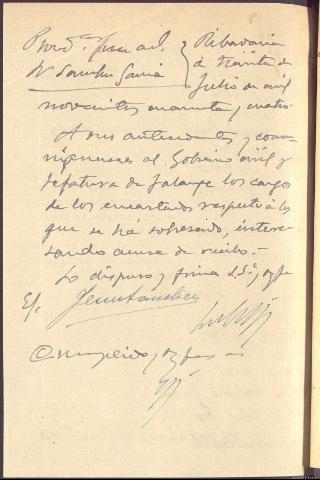 Provd.ª Juez acl.
Sr Sanchez Garcia
Ribadavia
a treinta de
Julio de mil
novecientos cuarenta y cuatro.
A sus antecedentes y comu-
niquense al Gobierno civil y
Jefatura de Falange los cargos
de los encartados respecto a los
que se há sobreseido, intere-
sando acuse de recibo.-
Lo dispuso y firma S.Sª, doy fe
E/. Jesus Sanchez
Cumplido, doy fe